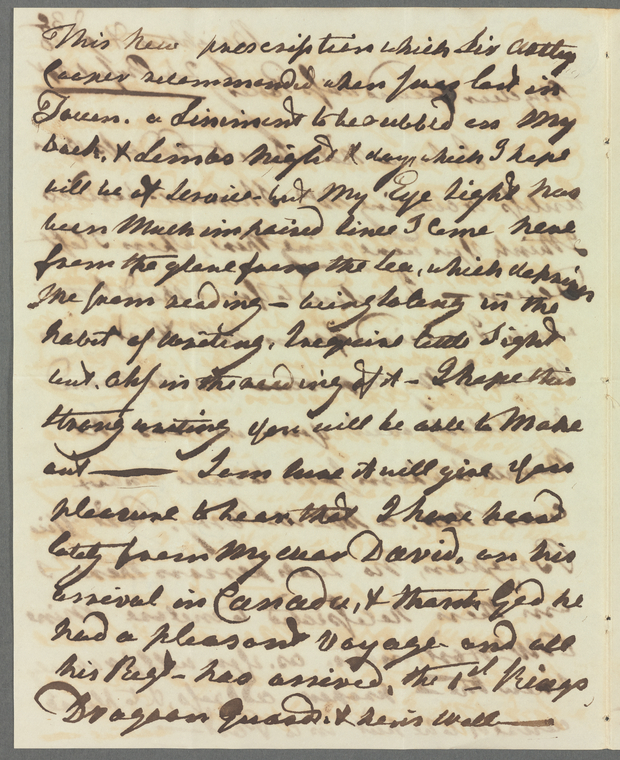 This New prescription which Sir Astley
Cooper recommended when I was last in
Town. a Liniment to be rubbed on My
back, & Limbs Night & day, which I hope
will be of Service - but My Eye Sight has
been Much impaired Since I Came here
from the glare from the Sea, which deprives
Me from reading - being so long in the
habit of writing, I require little Sight
but. Oh! in the reading of it - I hope this
Strong writing you will be able to Make
out — I am Sure it will give you
pleasure to hear, that I have heard
lately from My dear David, on his
arrival in Canada, & thank God he
had a pleasant Voyage and all
his Regt - has arrived, the 1st Kings
Dragoon Guards. & he is Well —